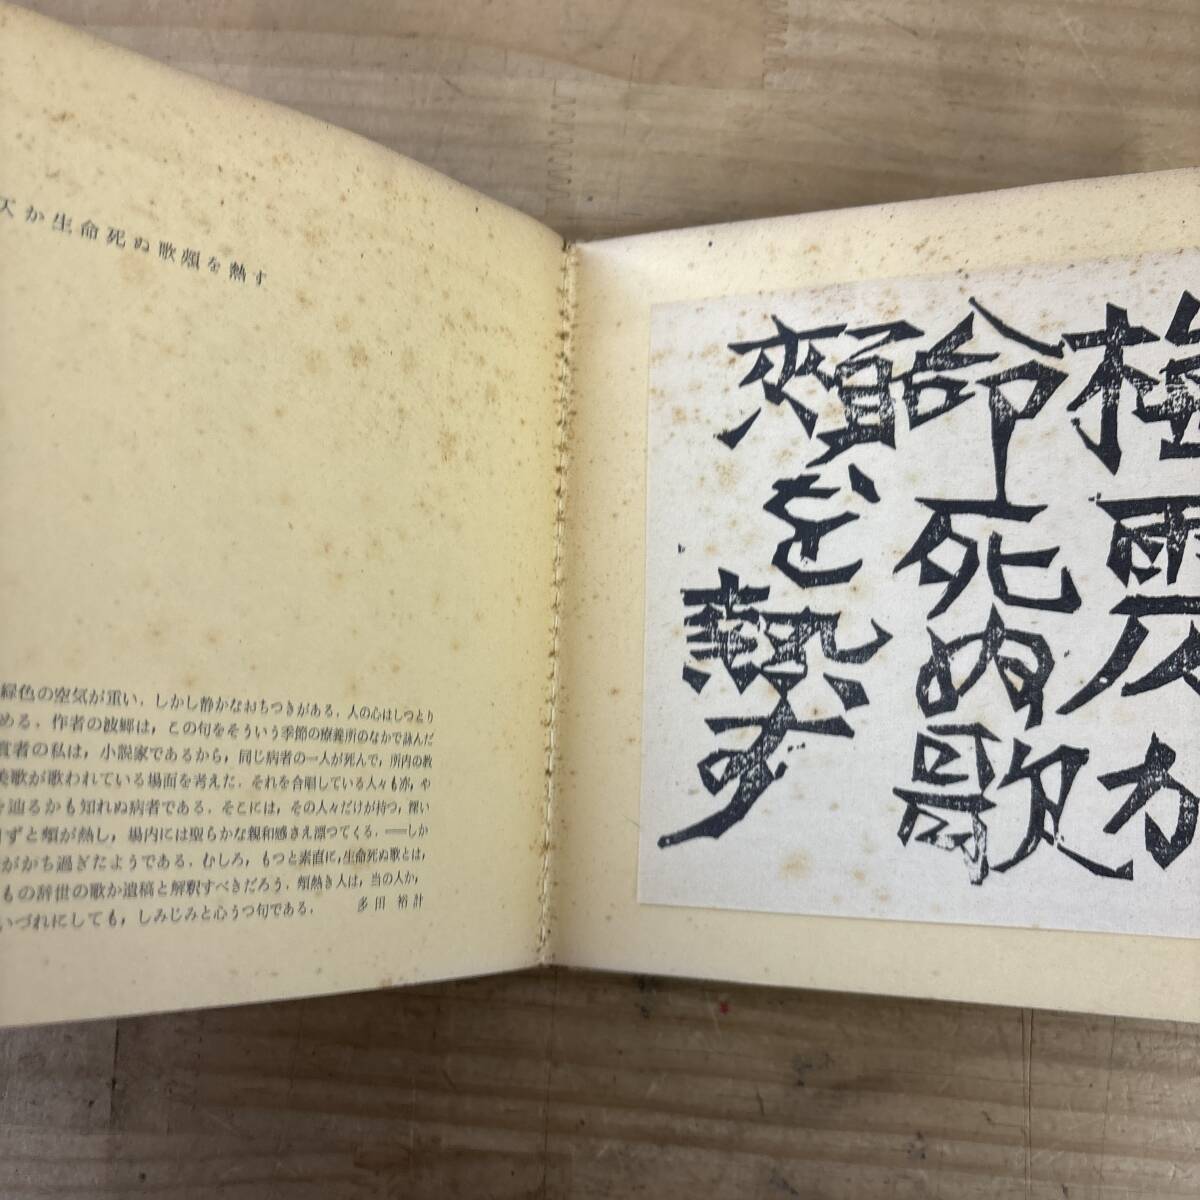 天か生命死ぬ歌頰を熱す
緑色の空気が重い．しかし静かなおちつきがある．人の心はしつとり
める．作者の波郷は，この句をそういう季節の療養所のなかで詠んだ
賞者の私は，小説家であるから，同じ病者の一人が死んで，所内の教
美歌が歌われている場面を考えた．それを合唱している人々も亦，や
を辿るかも知れぬ病者である．そこには，その人々だけが持つ，裸い
ずと頰が熱し，場内には聖らかな親和感さえ漂つてくる．──しか
がかち過ぎたようである．むしろ，もつと素直に，生命死ぬ歌とは，
もの辞世の歌か遺稿と解釈すべきだろう．頰熱き人は，当の人か，
いづれにしても，しみじみと心うつ句である．
多田裕計
梅雨天か
命死ぬ歌
頰を熱す